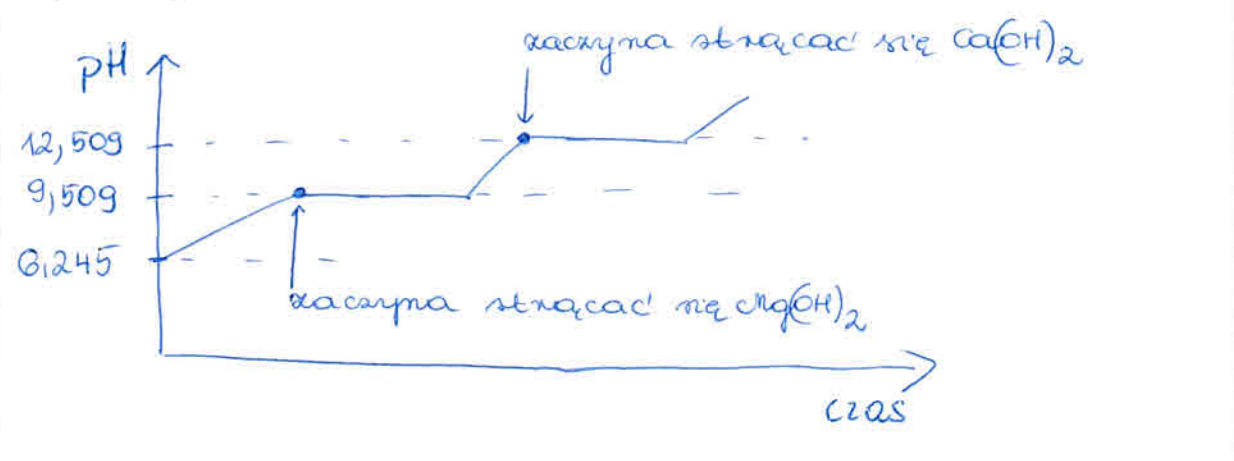 zaczyna strącać się Ca(OH)2
pH
12,509
9,509
6,245
zaczyna strącać się Mg(OH)2
czas